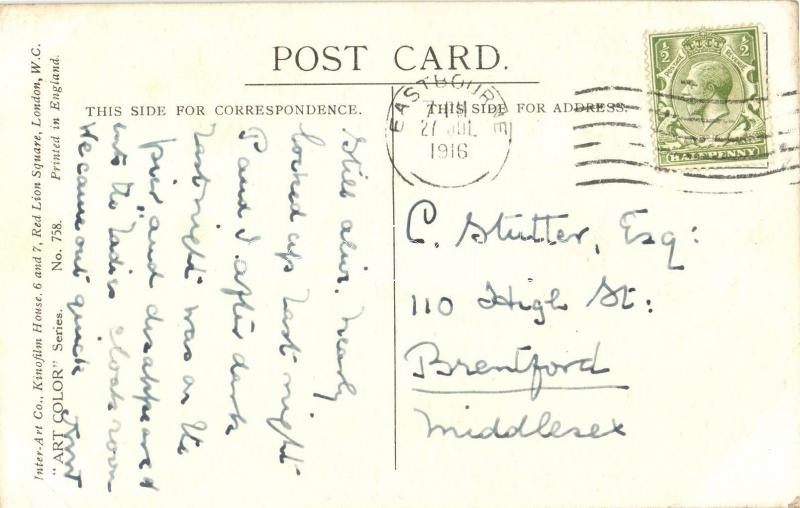 POST CARD.
THIS SIDE FOR CORRESPONDENCE.
THIS SIDE FOR ADDRESS.
Inter-Art Co., Kinofilm House, 6 and 7, Red Lion Square, London, W.C.
"ART COLOR" Series. No. 758. Printed in England.
EASTBOURNE
27 JUL
1916
½ ½
HALFPENNY
Still alive. Nearly
locked up last night
P and I after dark
last night was on the
pier and disappeared
into the "Ladies cloakroom
We came out quick
C. Stutter, Esq:
110 High St:
Brentford
Middlesex